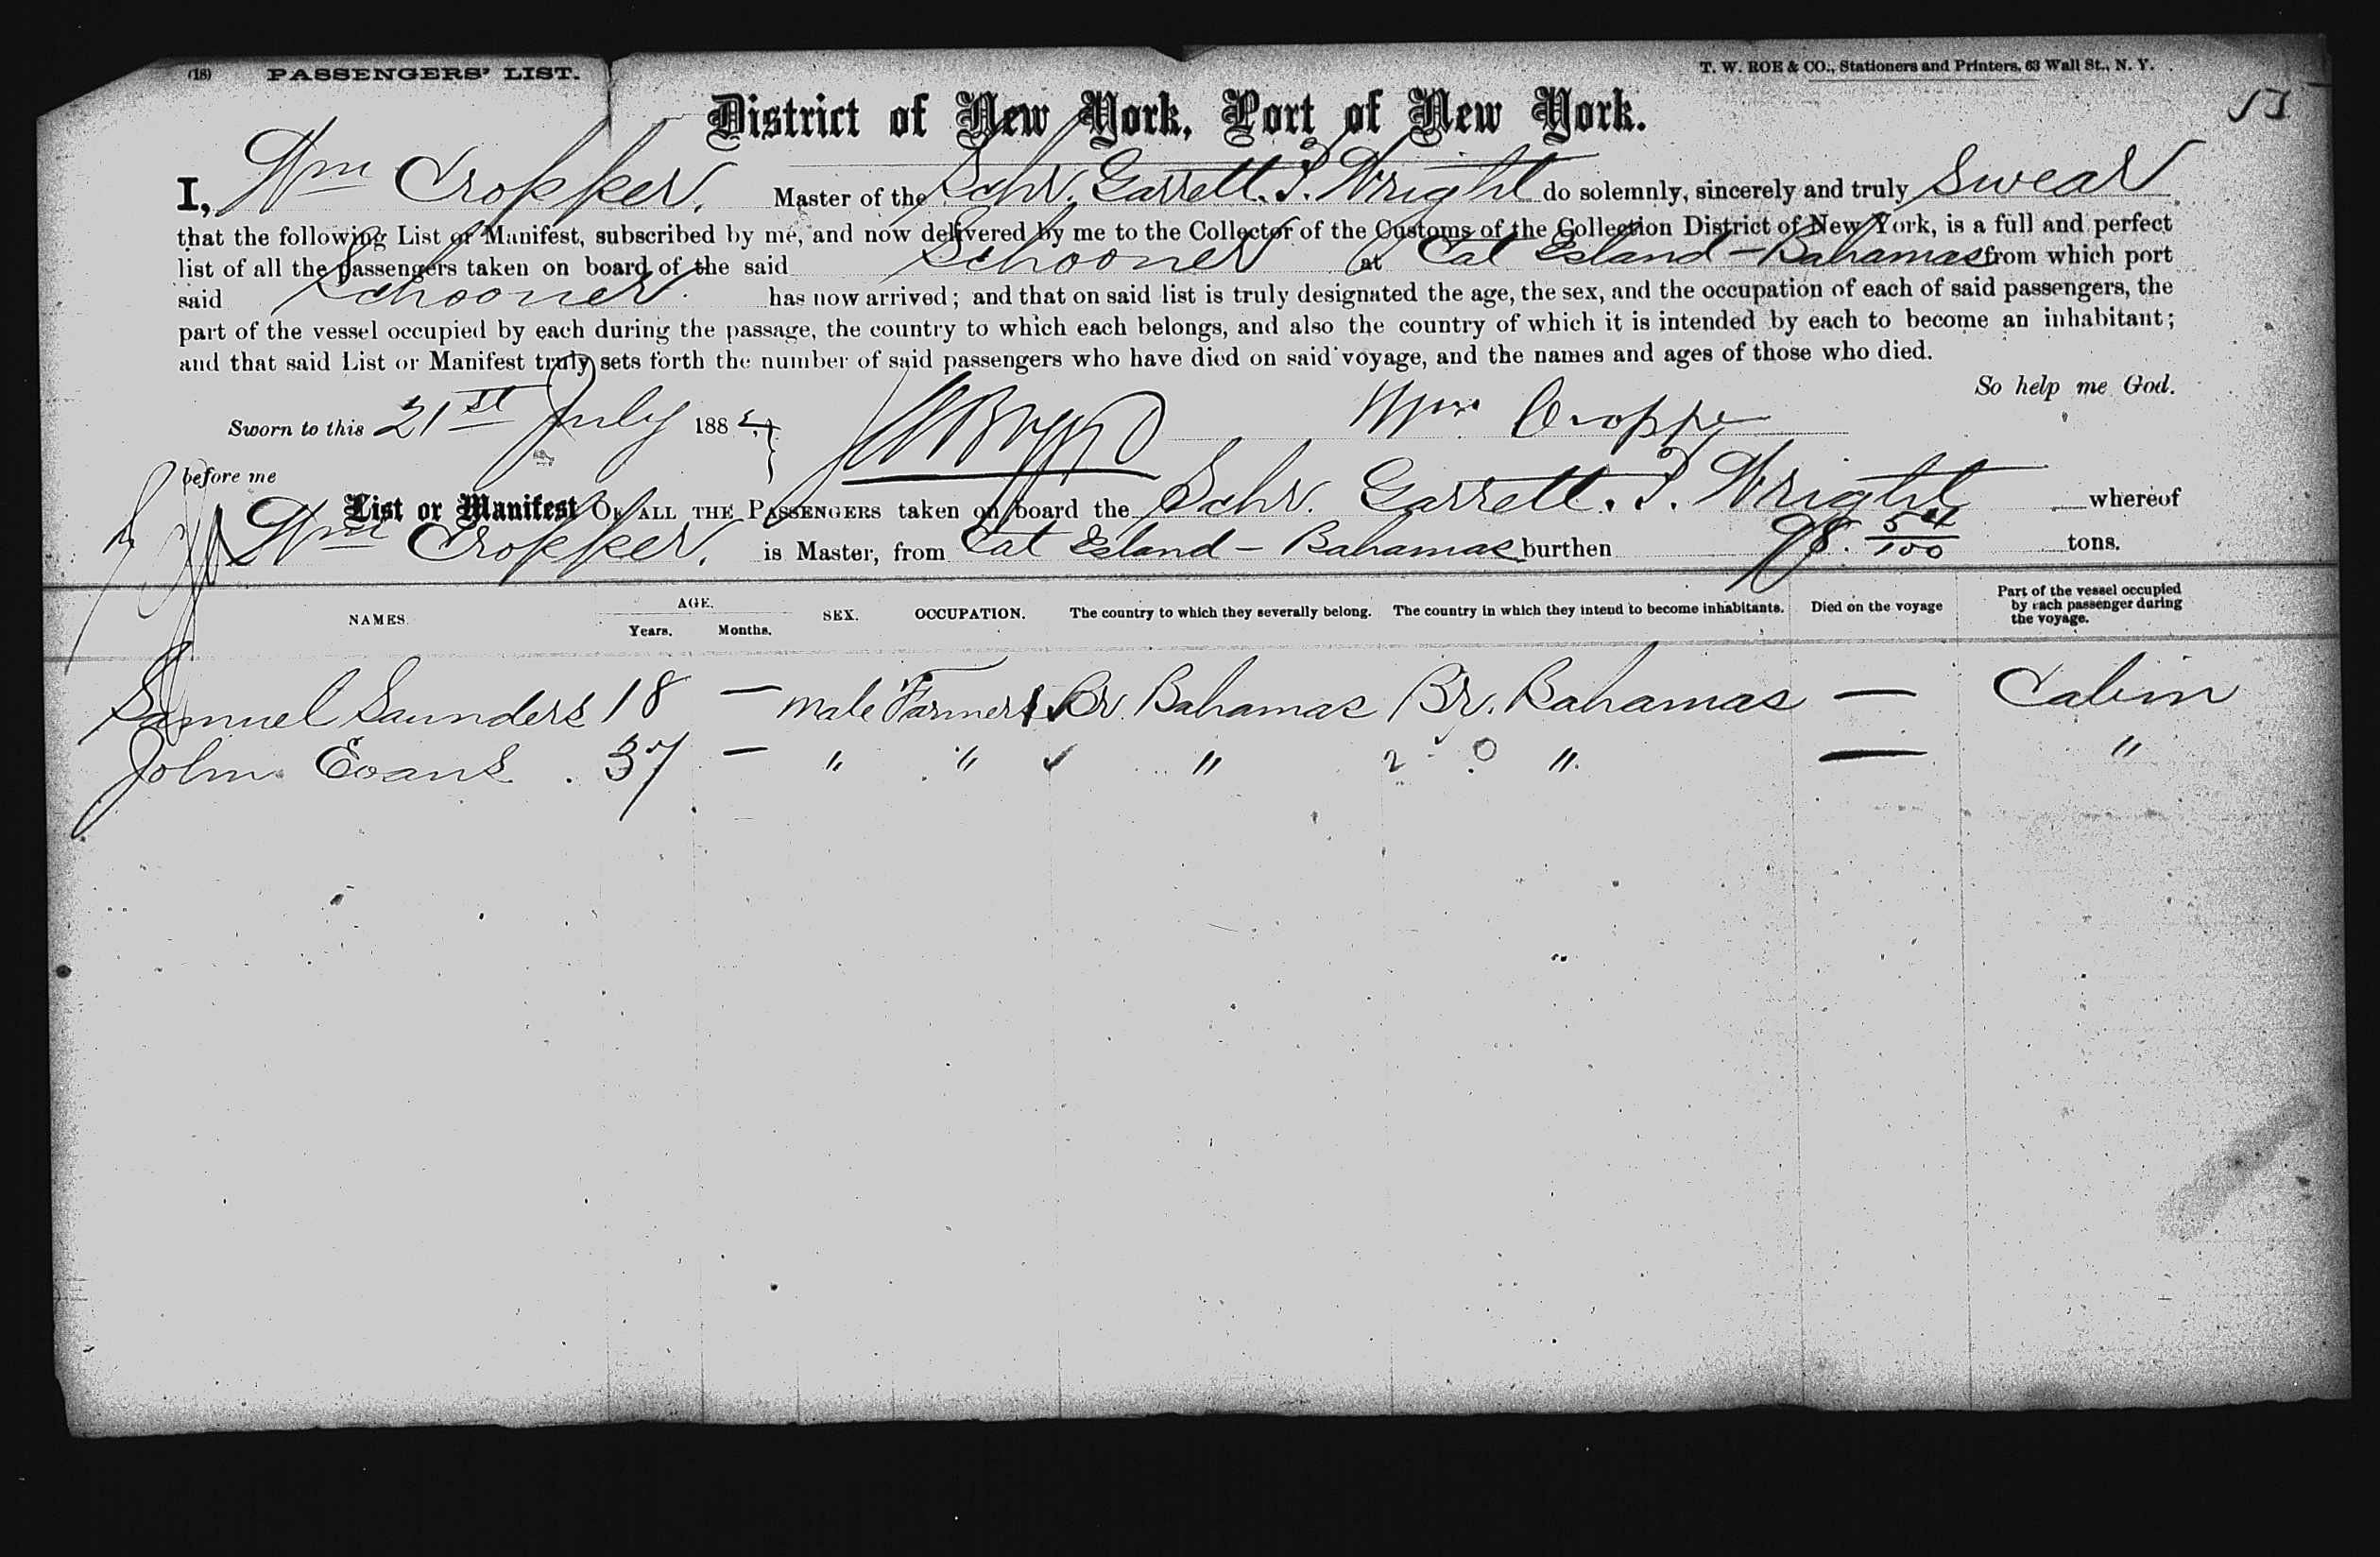 (18) PASSENGERS' LIST. T. W. ROE & CO., Stationers and Printers, 63 Wall St., N. Y.
District of New York, Port of New York.
I, Wm Cropper. Master of the Schr. Garrett. P. Wright do solemnly, sincerely and truly Swear
that the following List or Manifest, subscribed by me, and now delivered by me to the Collector of the Customs of the Collection District of New York, is a full and perfect
list of all the passengers taken on board of the said Schooner at Cat Island - Bahamas from which port
said Schooner. has now arrived; and that on said list is truly designated the age, the sex, and the occupation of each of said passengers, the
part of the vessel occupied by each during the passage, the country to which each belongs, and also the country of which it is intended by each to become an inhabitant;
and that said List or Manifest truly sets forth the number of said passengers who have died on said voyage, and the names and ages of those who died.
So help me God.
Sworn to this 21st July 188 Wm Cropper
before me
List or Manifest OF ALL THE PASSENGERS taken on board the Schr. Garrett. P. Wright whereof
Wm Cropper. is Master, from Cat Island - Bahamas burthen 98. 54/100 tons.
NAMES. AGE. Years. Months. SEX. OCCUPATION. The country to which they severally belong. The country in which they intend to become inhabitants. Died on the voyage Part of the vessel occupied by each passenger during the voyage.
Samuel Saunders 18 — male Farmer Br. Bahamas Br. Bahamas — Cabin
John Evans. 37 — " " " " — "